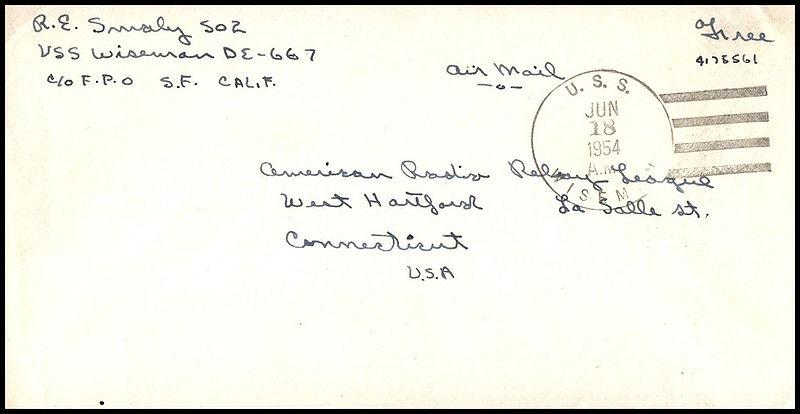 R.E. Smaly SO2
USS Wiseman DE-667
c/o F.P.O S.F. CALIF.
Free
4175561
Air Mail
U.S.S.
JUN
18
1954
A.M.
WISEM
American Radio Relay League
West Hartford La Salle st.
Connecticut
U.S.A